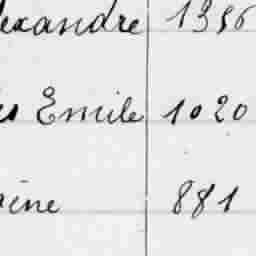 lexandre 1356
es Emile 1020
aine 881